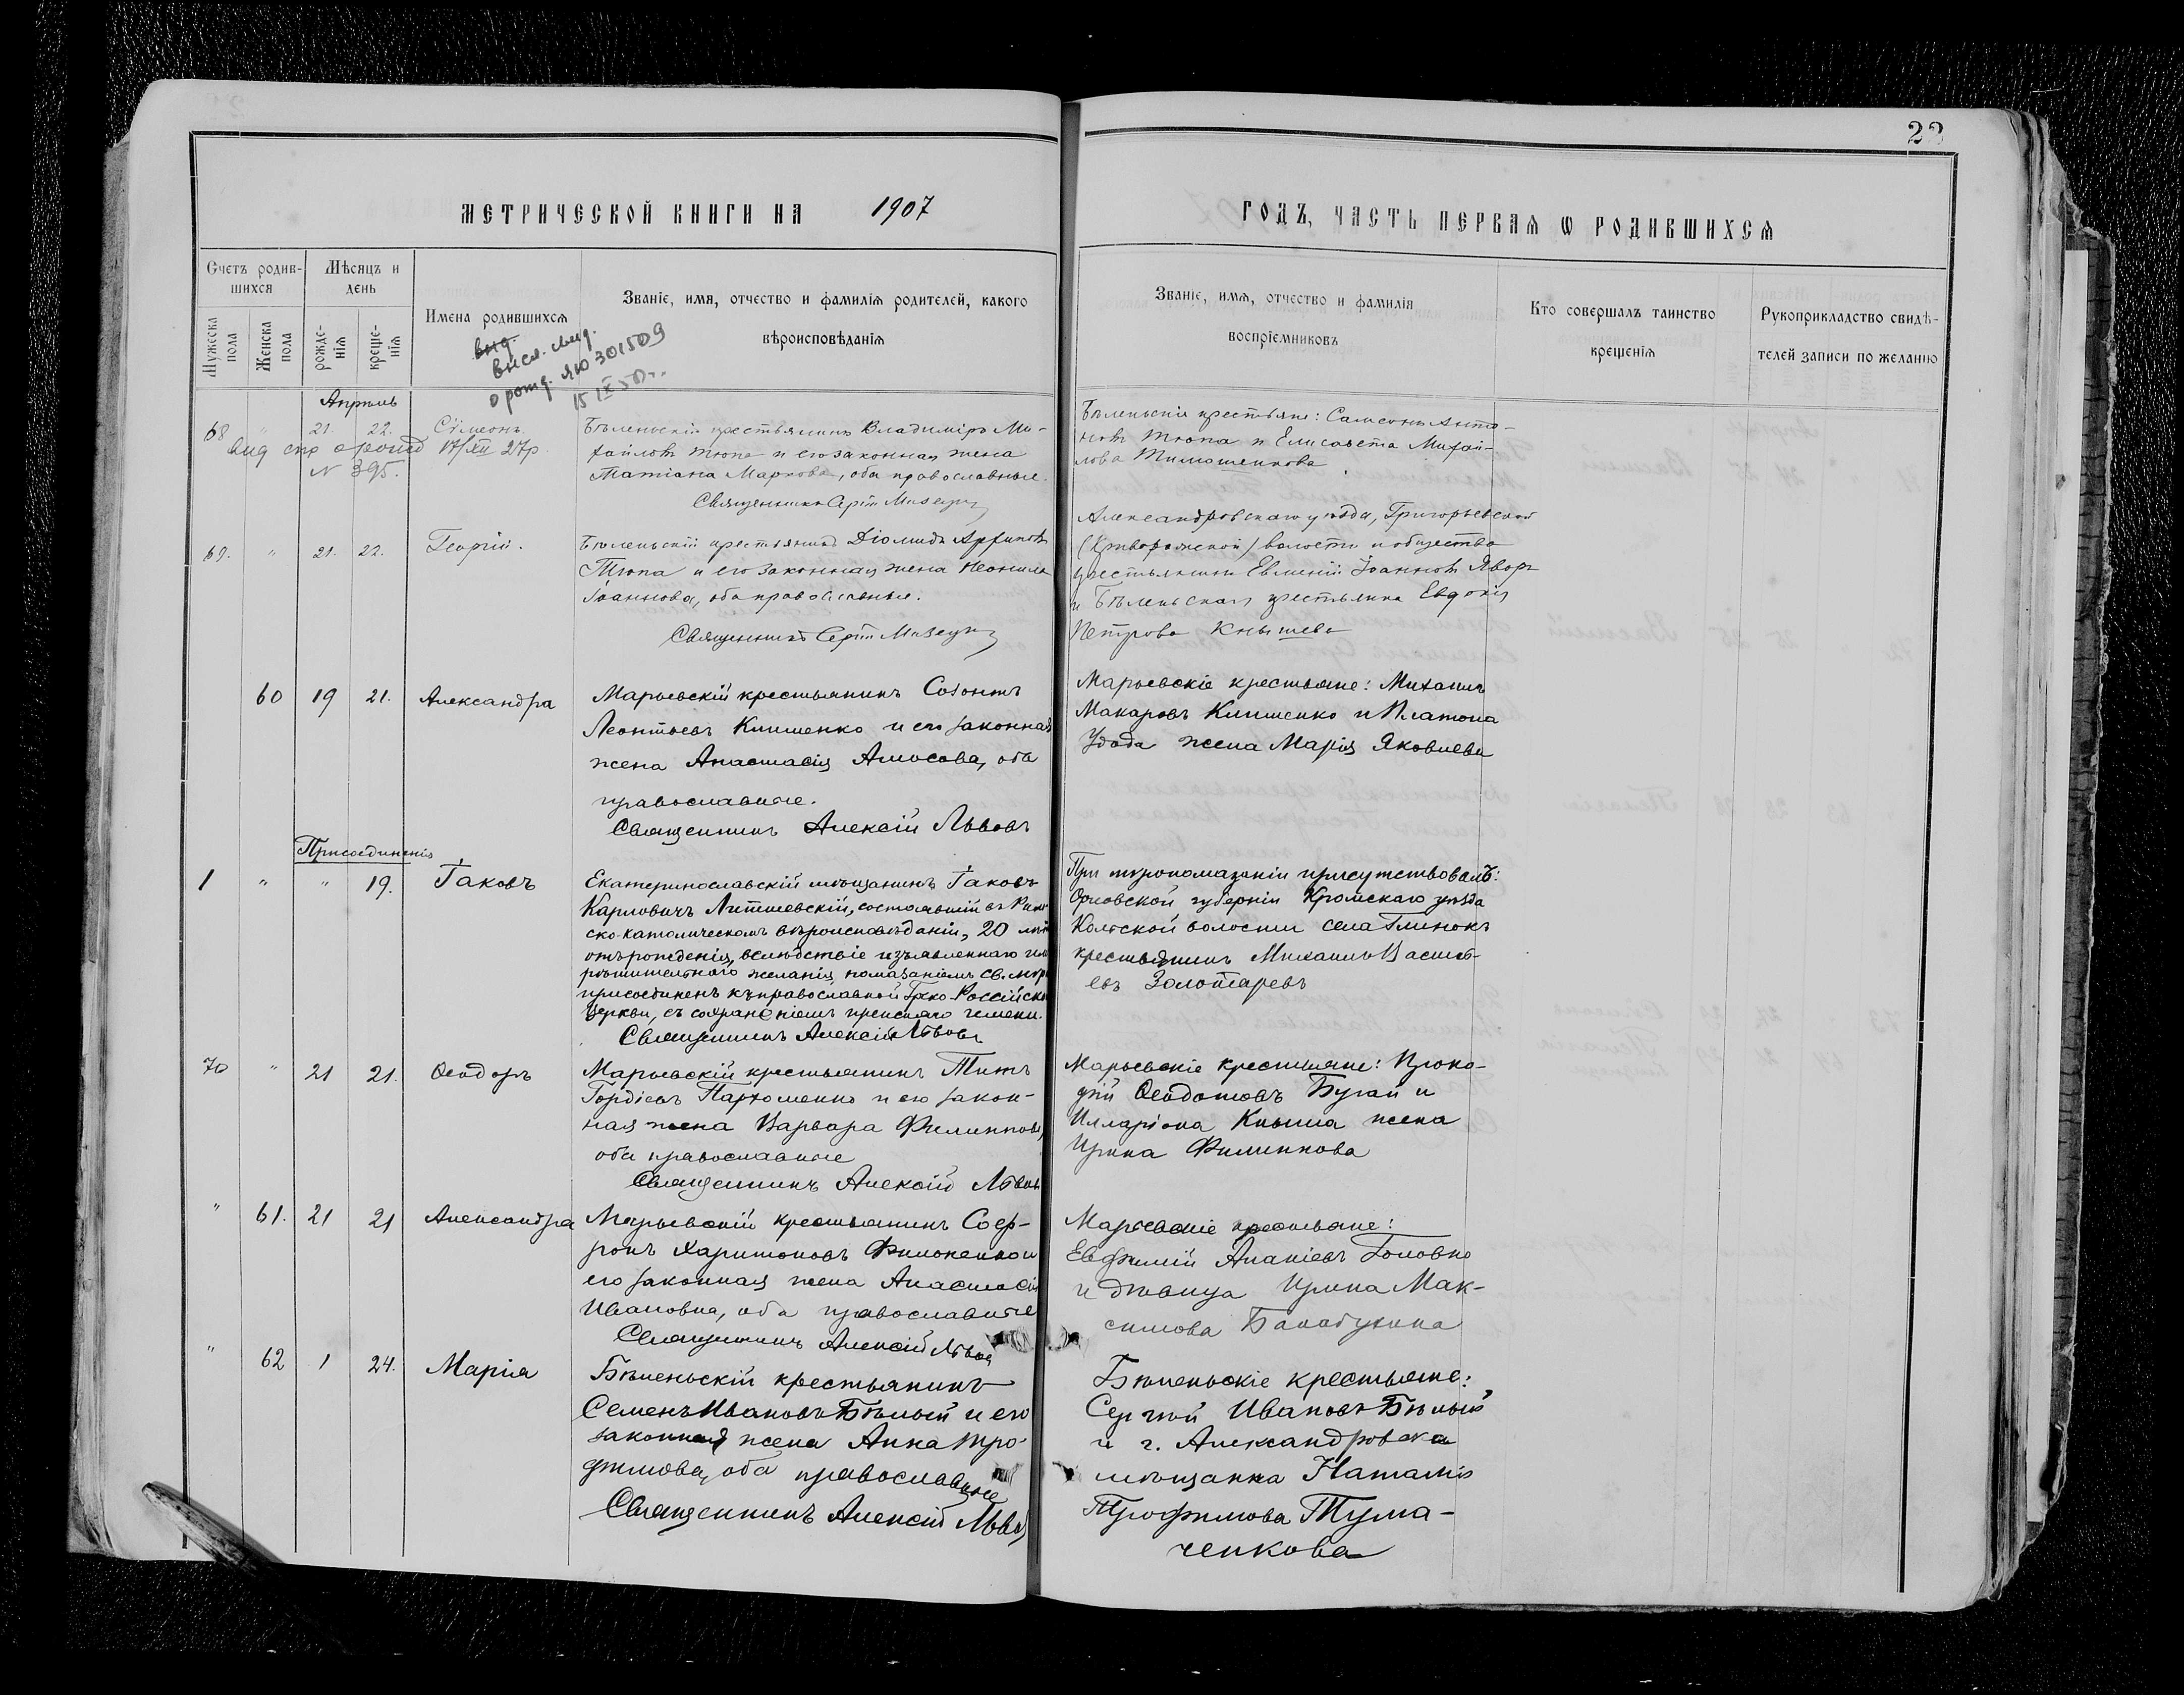 22
МЕТРИЧЕСКОЙ КНИГИ НА 1907
ГОДЪ, ЧАСТЬ ПЕРВАЯ Ѡ РОДИВШИХСЯ
Счетъ родив-
шихся
Мужеска
пола
Женска
пола
Мѣсяцъ и
день
рожде-
нія
креще-
нія
Имена родившихся
Званіе, имя, отчество и фамилія родителей, какого
вѣроисповѣданія
Званіе, имя, отчество и фамилія
воспріемниковъ
Кто совершалъ таинство
крещенія
Рукоприкладство свидѣ-
телей записи по желанію
выд.
о рожд. ЯЮ 301509
15 IX 50 г.
Апрель
68 " 21. 22. Сѵмеонъ
выд спр о рожд 17/XII 27р.
N 395.
Бѣленьскій крестьянинъ Владиміръ Ми-
хайловъ Тюпа и его законная жена
Татіана Маркова, оба православные.
Священникъ
Бѣленьскіе крестьяне: Самсонъ Анто-
новъ Тюпа и Елисавета Михай-
лова Тимошенкова.
69. " 21. 22. Георгій.
Бѣленьскій крестьянинъ Діомидъ
Тюпа и его законная жена Неонила
Іоаннова, оба православные.
Священникъ
Александровскаго уѣзда, Григорьевской
(Криворожской) волости и общества
крестьянинъ Евменій Іоанновъ Яворъ
и Бѣленьская крестьянка Евдокія
Петрова Кнышева
60 19 21. Александра
Марьевскій крестьянинъ Созонтъ
Леонтьевъ Клименко и его законная
жена Анастасія Амосова, оба
православные.
Священникъ Алексій Львовъ
Марьевскіе крестьяне: Михаилъ
Макаровъ Клименко и Платона
Удода жена Марія Яковлева
Присоединенія
1 " " 19. Іаковъ
Екатеринославскій мѣщанинъ Іаковъ
Карловичъ Литшевскій, состоявшій въ Рим-
ско-католическомъ вѣроисповѣданіи, 20 лѣтъ
отъ рожденія, вслѣдствіе изъявленнаго имъ
рѣшительнаго желанія, помазаніемъ св. мѵра
присоединенъ къ православной Греко-Россійской
Церкви, съ сохраненіемъ прежняго имени.
Священникъ Алексій Львовъ
При мѵропомазаніи присутствовалъ:
Орловской губерніи Кромскаго уѣзда
волости села Глинокъ
крестьянинъ Михаилъ Василь-
евъ Золотаревъ
70 " 21 21. Ѳеодоръ
Марьевскій крестьянинъ Титъ
Гордіевъ Пархоменко и его закон-
ная жена Варвара Филиппова,
оба православные
Священникъ Алексій Львовъ
Марьевскіе крестьяне: Проко-
пій Ѳеодотовъ Бугай и
Илларіона Кныша жена
Ирина Филиппова
" 61. 21 21 Александра
Марьевскій крестьянинъ Соф-
ронъ Харитоновъ Филоненко и
его законная жена Анастасія
Ивановна, оба православные
Священникъ Алексій Львовъ
Марьевскіе крестьяне:
Евфимій Ананіевъ Головко
и дѣвица Ирина Мак-
симова Балабухина
" 62 1 24. Марія
Бѣленьскій крестьянинъ
Семенъ Ивановъ Бѣлый и его
законная жена Анна Тро-
фимова, оба православные
Священникъ Алексій Львовъ
Бѣленьскіе крестьяне:
Сергѣй Ивановъ Бѣлый
и г. Александровска
мѣщанка Наталія
Трофимова Тума-
ченкова